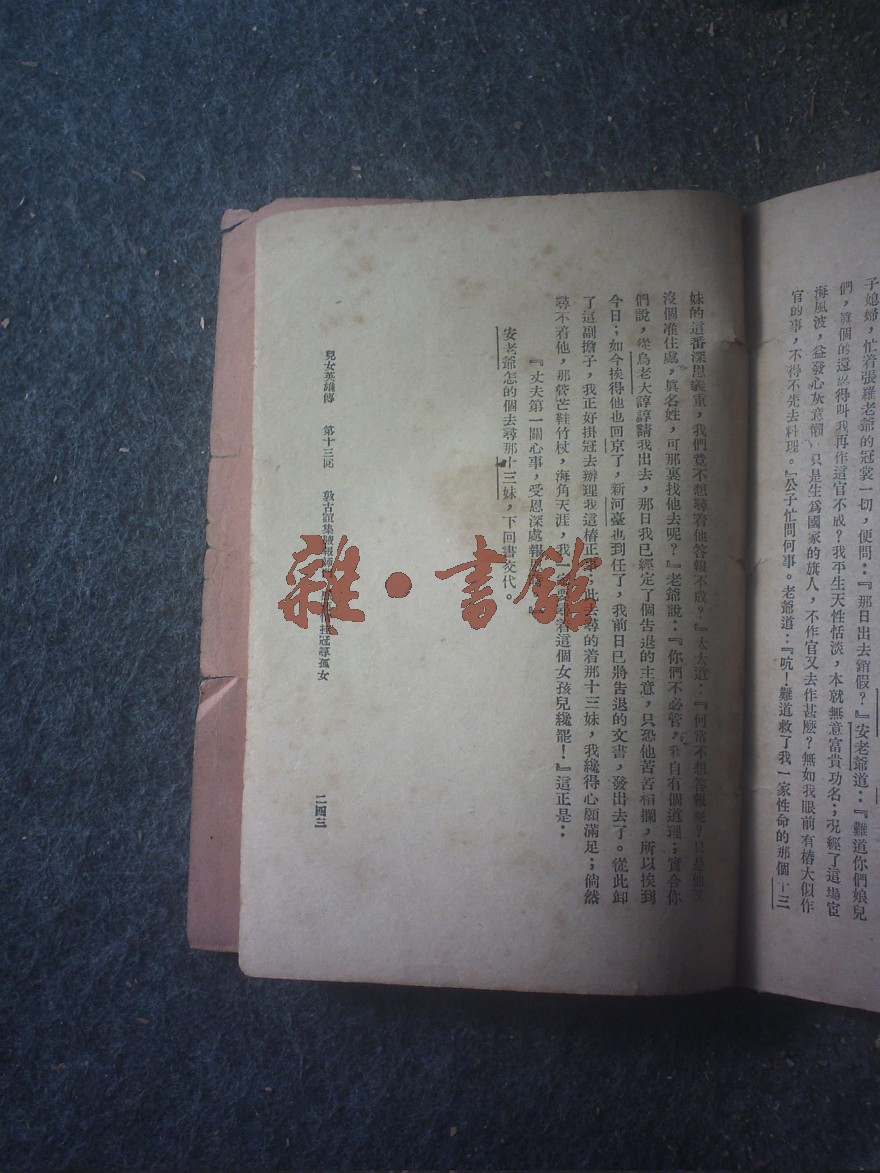 子媳婦，忙着張羅老爺的冠裳一切，便問：『那日出去銷假？』安老爺道：『難道你們娘兒
們，眞個的還得叫我再作這官不成？我平生天性恬淡，本就無意富貴功名；況經了這場宦
海風波，益發心灰意懶，只是生爲國家的旗人，不作官又去作甚麽？無如我眼前有樁大似作
官的事，不得不先去料理。』公子忙問何事。老爺道：『吭！難道救了我一家性命的那個十三
妹的這番深恩義重，我們竟不想尋着他答報不成？』太太道：『何嘗不想答報呢？只是他又
沒個准住處，眞名姓，可那裏找他去呢？』老爺說：『你們不必管，我自有個道理；實合你
們說，從烏老大諄諄請我出去，那日我已經定了個告退的主意，只恐他苦苦相攔，所以挨到
今日；如今挨得他也回京了，新河臺也到任了，我前日已將告退的文書，發出去了。從此卸
了這副擔子，我正好掛冠去辦理我這樁正事；此去尋的着那十三妹，我纔得心願滿足；倘然
尋不着他，那管芒鞋竹杖，海角天涯，我一定要尋着這個女孩兒纔罷！』這正是：
『丈夫第一關心事，受恩深處報恩時。』
安老爺怎的個去尋那十三妹，下回書交代。
兒女英雄傳　第十三回　敦古誼集腋報師門　掛冠尋孤女
二四三
雜・書館